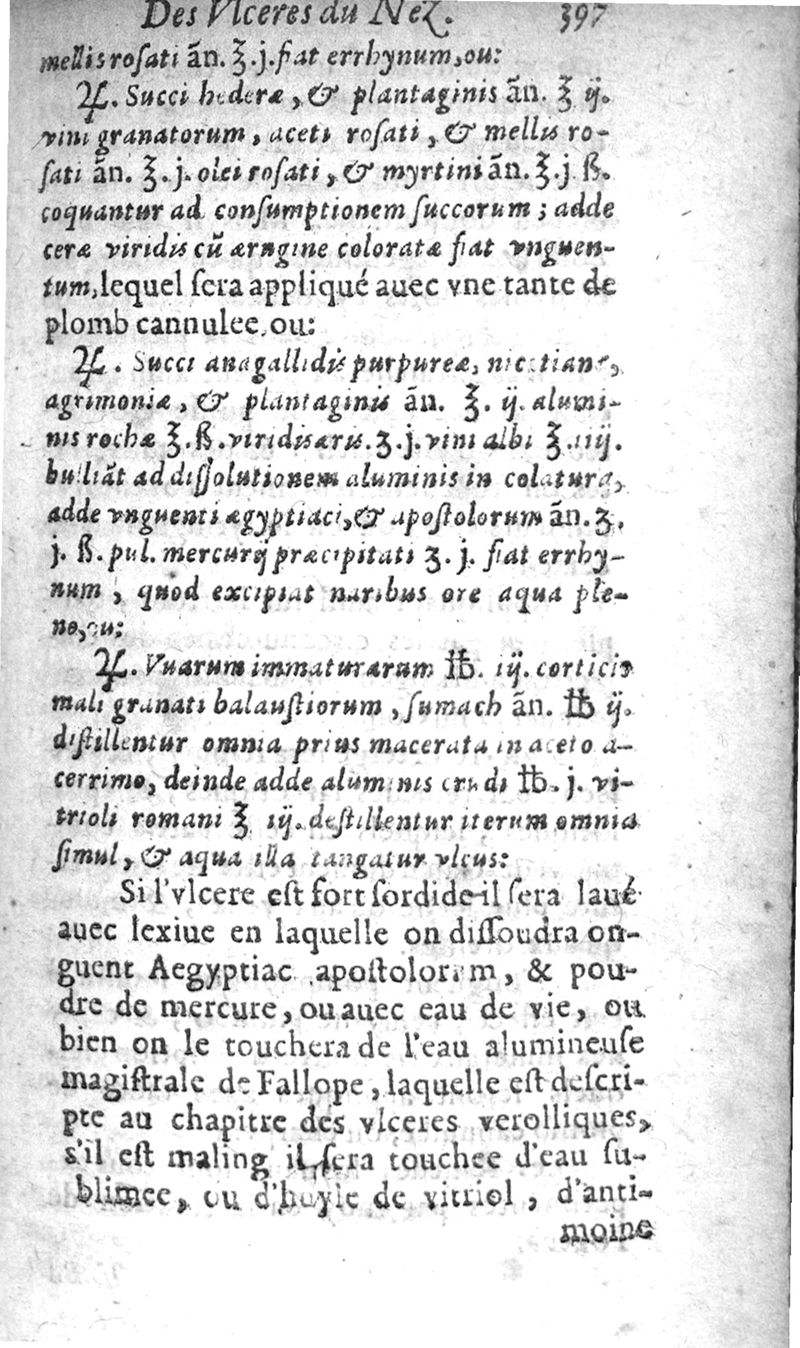 Des Vlceres du Nez. 397
mellis rosati añ. ℥.j. fiat errhynum, ou:
♃. Succi hederæ, & plantaginis añ. ℥ ij.
vini granatorum, aceti rosati, & mellis ro-
sati añ. ℥.j. olei rosati, & myrtini añ. ℥.j ß.
coquantur ad consumptionem succorum; adde
ceræ viridis cũ ærugine coloratæ fiat vnguen-
tum, lequel sera appliqué auec vne tante de
plomb cannulee, ou:
♃. Succi anagallidis purpureæ, nicotianæ,
agrimoniæ, & plantaginis añ. ℥. ij. alumi-
nis rochæ ℥.ß. viridis æris. ʒ.j. vini albi ℥.iiij.
bulliãt ad dissolutionem aluminis in colatura,
adde vnguenti ægyptiaci, & apostolorum añ. ʒ.
j. ß. pul. mercurij præcipitati ʒ. j. fiat errhy-
num, quod excipiat naribus ore aqua ple-
no, ou:
♃. Vuarum immaturarum ℔. iij. corticis
mali granati balaustiorum, sumach añ. ℔ ij.
distillentur omnia prius macerata in aceto a-
cerrimo, deinde adde aluminis crudi ℔. j. vi-
trioli romani ℥ iij. destillentur iterum omnia
simul, & aqua illa tangatur vlcus:
Si l'vlcere est fort sordide il sera laué
auec lexiue en laquelle on dissoudra on-
guent Aegyptiac apostolorum, & pou-
dre de mercure, ou auec eau de vie, ou
bien on le touchera de l'eau alumineuse
magistrale de Fallope, laquelle est descri-
pte au chapitre des vlceres verolliques,
s'il est maling il sera touchee d'eau su-
blimee, ou d'huyle de vitriol, d'anti-
moine